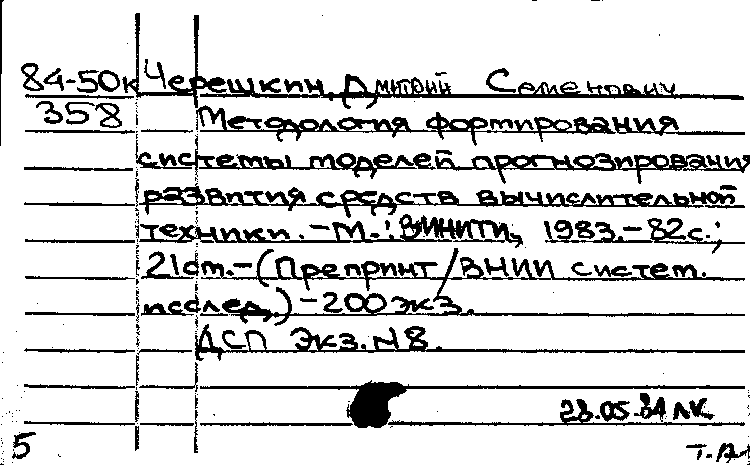 84-50к Черешкин, Дмитрий Семенович
358 Методология формирования
системы моделей прогнозирования
развития средств вычислительной
техники. – М.: ВИНИТИ, 1983. – 82 с.;
21 см. – (Препринт / ВНИИ систем.
исслед.) – 200 экз.
ДСП Экз. N 8.
28.05.84 ЛК
5